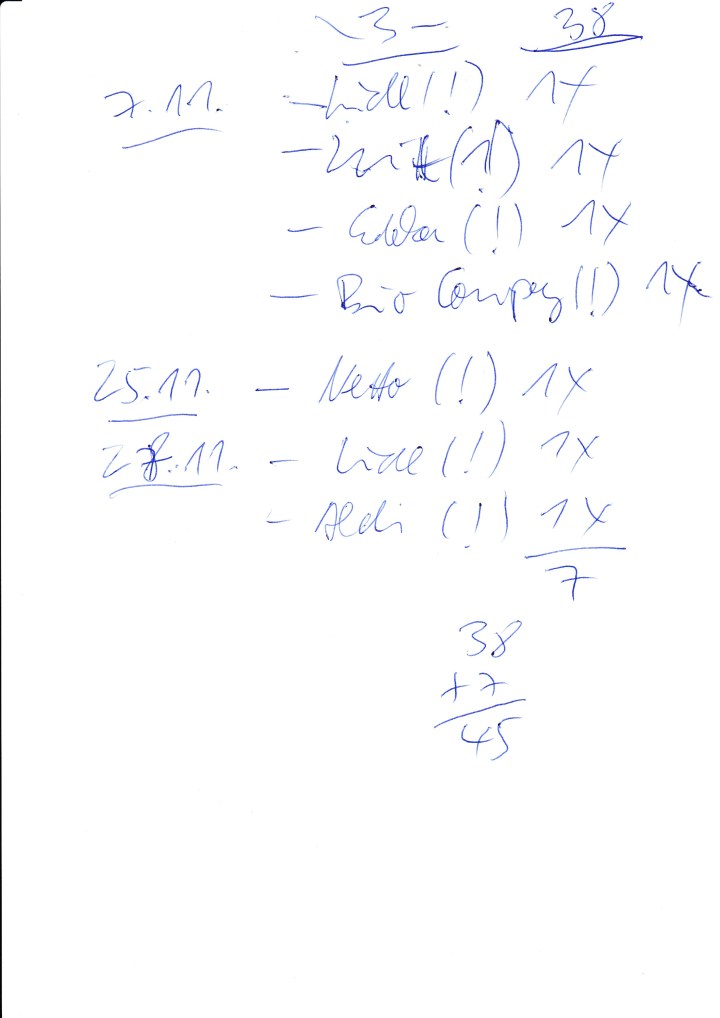 - 3 - 38
7.11. - Lidl (!) 1x
- (!) 1x
- Edeka (!) 1x
- Bio Company (!) 1x
25.11. - Netto (!) 1x
28.11. - Lidl (!) 1x
- Aldi (!) 1x
7
38
+7
45